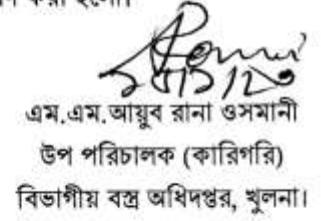 করা হলো।
এম.এম.আয়ুব রানা ওসমানী
উপ পরিচালক (কারিগরি)
বিভাগীয় বস্ত্র অধিদপ্তর, খুলনা।